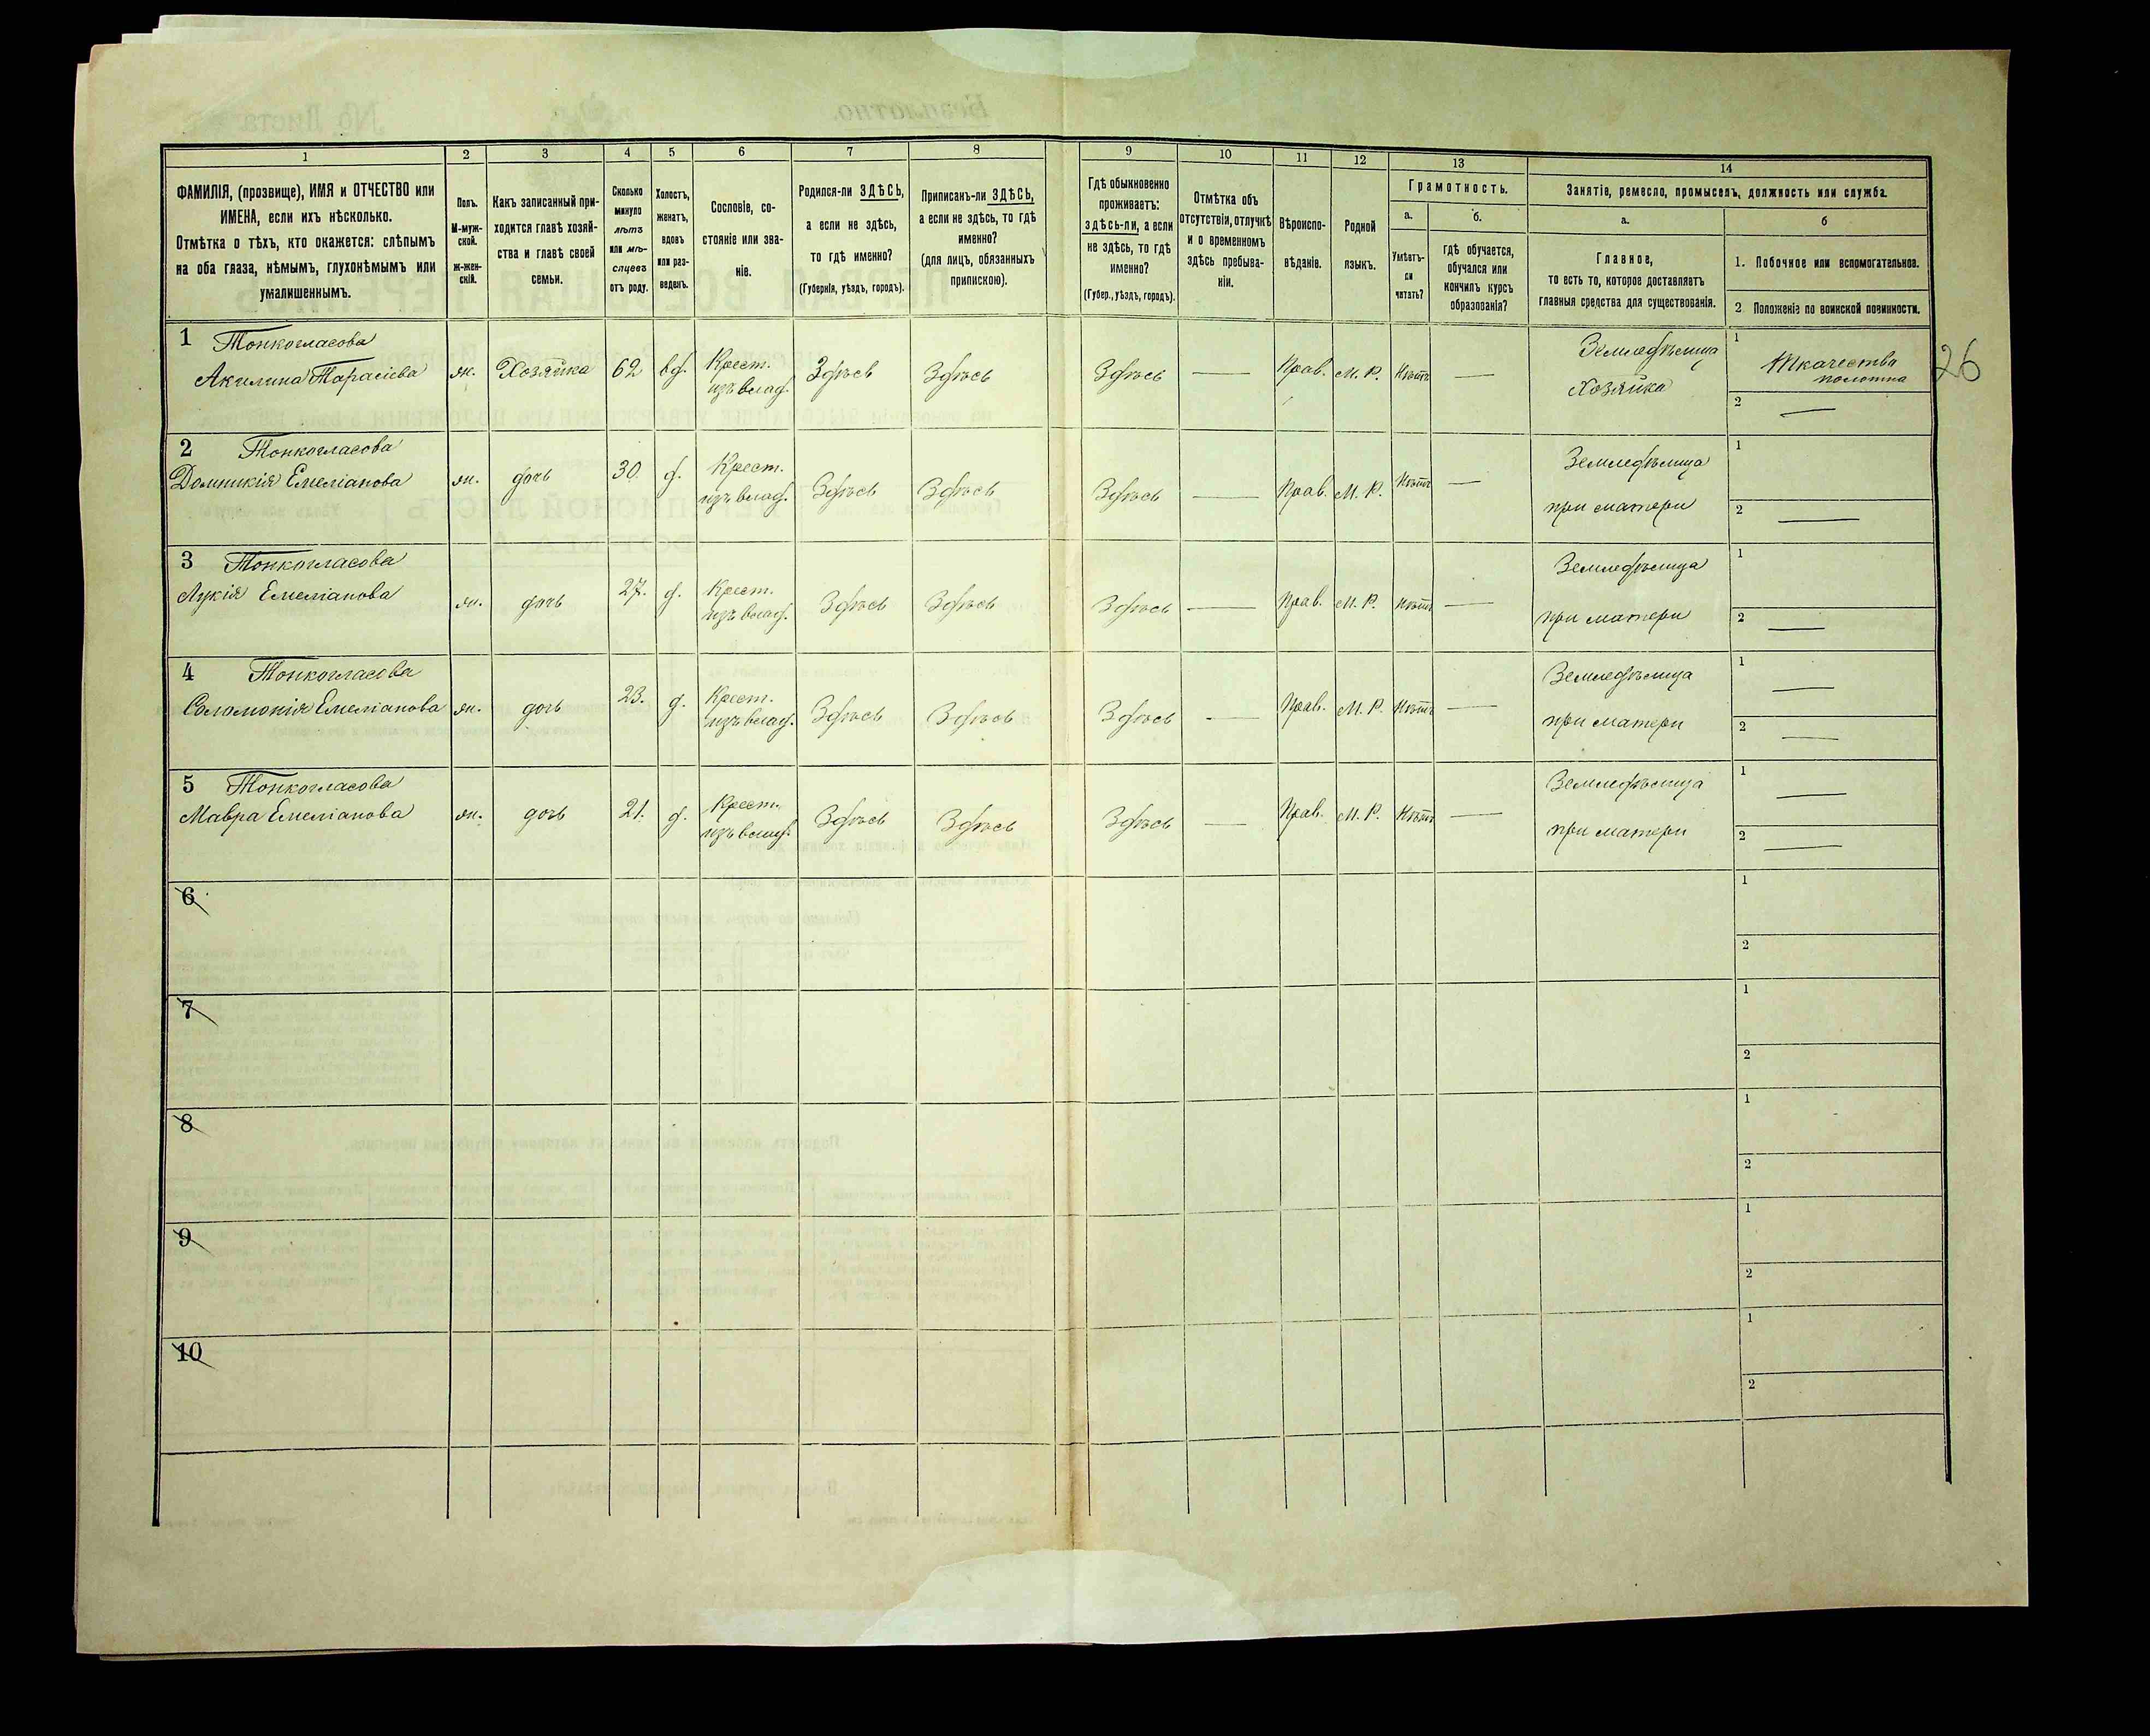 1
2
3
4
5
6
7
8
9
10
11
12
13
14
ФАМИЛІЯ, (прозвище), ИМЯ и ОТЧЕСТВО или
ИМЕНА, если ихъ нѣсколько.
Отмѣтка о тѣхъ, кто окажется: слѣпымъ
на оба глаза, нѣмымъ, глухонѣмымъ или
умалишеннымъ.
Полъ.
М-муж-
ской.
ж-жен-
скій.
Какъ записанный при-
ходится главѣ хозяй-
ства и главѣ своей
семьи.
Сколько
минуло
лѣтъ
или мѣ-
сяцевъ
отъ роду.
Холостъ,
женатъ,
вдовъ
или раз-
веденъ.
Сословіе, со-
стояніе или зва-
ніе.
Родился-ли ЗДѢСЬ,
а если не здѣсь,
то гдѣ именно?
(Губернія, уѣздъ, городъ).
Приписанъ-ли ЗДѢСЬ,
а если не здѣсь, то гдѣ
именно?
(для лицъ, обязанныхъ
припискою).
Гдѣ обыкновенно
проживаетъ:
здѣсь-ли, а если
не здѣсь, то гдѣ
именно?
(Губер., уѣздъ, городъ).
Отмѣтка объ
отсутствіи, отлучкѣ
и о временномъ
здѣсь пребыва-
ніи.
Вѣроиспо-
вѣданіе.
Родной
языкъ.
Грамотность.
а.
Умѣетъ-
ли
читать?
б.
гдѣ обучается,
обучался или
кончилъ курсъ
образованія?
Занятіе, ремесло, промыселъ, должность или служба.
а.
Главное,
то есть то, которое доставляетъ
главныя средства для существованія.
б
1. Побочное или вспомогательное.
2 Положеніе по воинской повинности.
1 Тонкогласова
Акилина Тарасіева
ж.
Хозяйка
62
вд.
Крест.
изъ влад.
Здѣсь
Здѣсь
Здѣсь
—
Прав.
М. Р.
Нѣтъ
—
Земледѣлица
Хозяйка
1
Ткачества
полотна
2 —
26
2 Тонкогласова
Домникія Емеліанова
ж.
дочь
30
д.
Крест.
изъ влад.
Здѣсь
Здѣсь
Здѣсь
—
Прав.
М. Р.
Нѣтъ
—
Земледѣлица
при матери
1
2 —
3 Тонкогласова
Лукія Емеліанова
ж.
дочь
27.
д.
Крест.
изъ влад.
Здѣсь
Здѣсь
Здѣсь
—
Прав.
М. Р.
Нѣтъ
—
Земледѣлица
при матери
1
2 —
4 Тонкогласова
Соломонія Емеліанова
ж.
дочь
23.
д.
Крест.
изъ влад.
Здѣсь
Здѣсь
Здѣсь
—
Прав.
М. Р.
Нѣтъ
—
Земледѣлица
при матери
1 —
2 —
5 Тонкогласова
Мавра Емеліанова
ж.
дочь
21.
д.
Крест.
изъ влад.
Здѣсь
Здѣсь
Здѣсь
—
Прав.
М. Р.
Нѣтъ
—
Земледѣлица
при матери
1 —
2 —
6
1
2
7
1
2
8
1
2
9
1
2
10
1
2